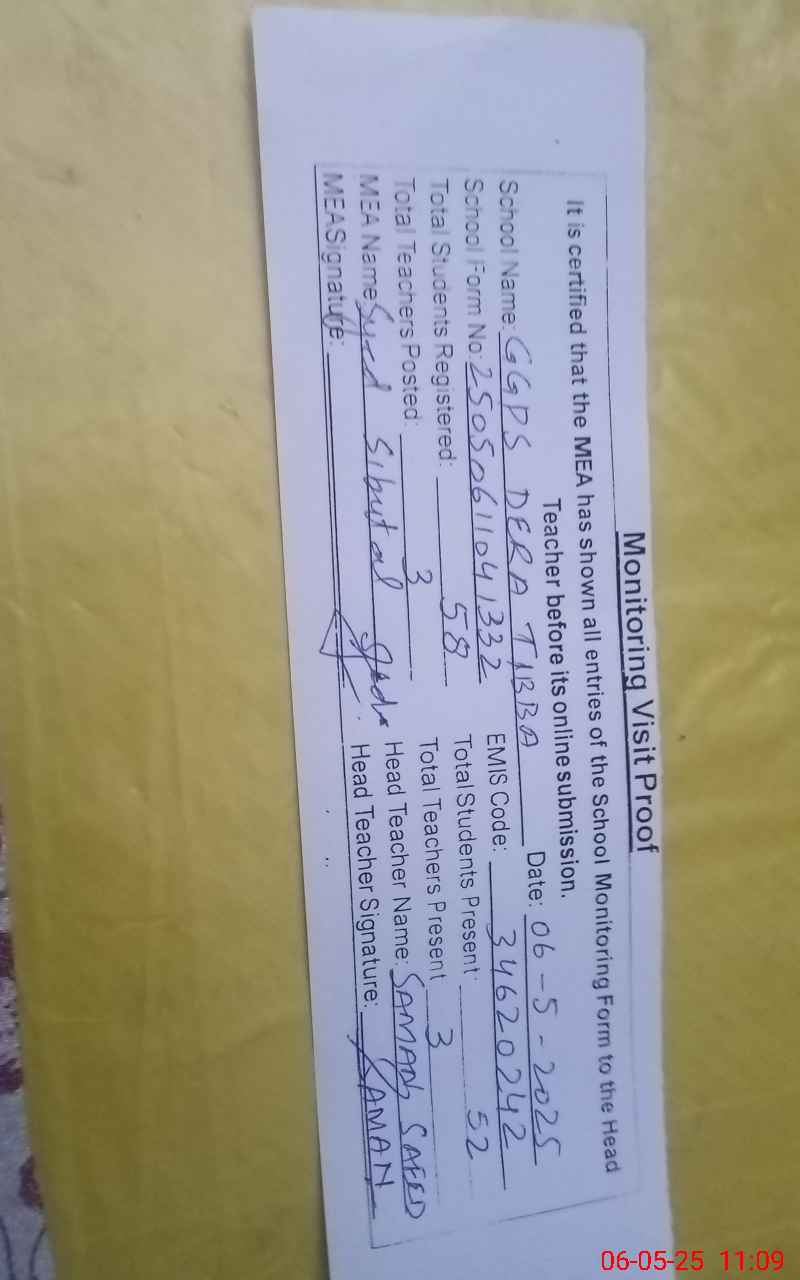 Monitoring Visit Proof
It is certified that the MEA has shown all entries of the School Monitoring Form to the Head
Teacher before its online submission.
School Name: GGPS DERA TIBBA Date: 06-5-2025
School Form No: 25050611041332 EMIS Code: 34620242
Total Students Registered: 58 Total Students Present: 52
Total Teachers Posted: 3 Total Teachers Present 3
MEA Name: Syed Sibut ul Head Teacher Name: SAMAN SAEED
MEA Signature: Head Teacher Signature: SAMAN
06-05-25 11:09